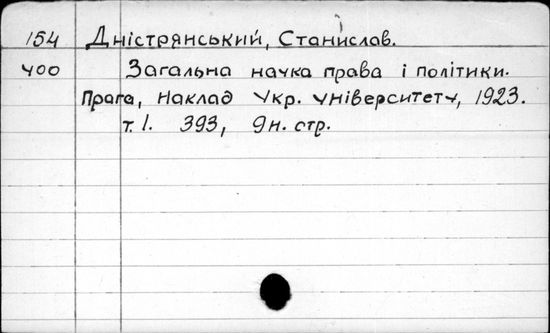 154 Дністрянський, Станислав.
400 Загальна наука права і політики.
Прага, Наклад Укр. університету, 1923.
т. 1. 393, 9 н. стр.